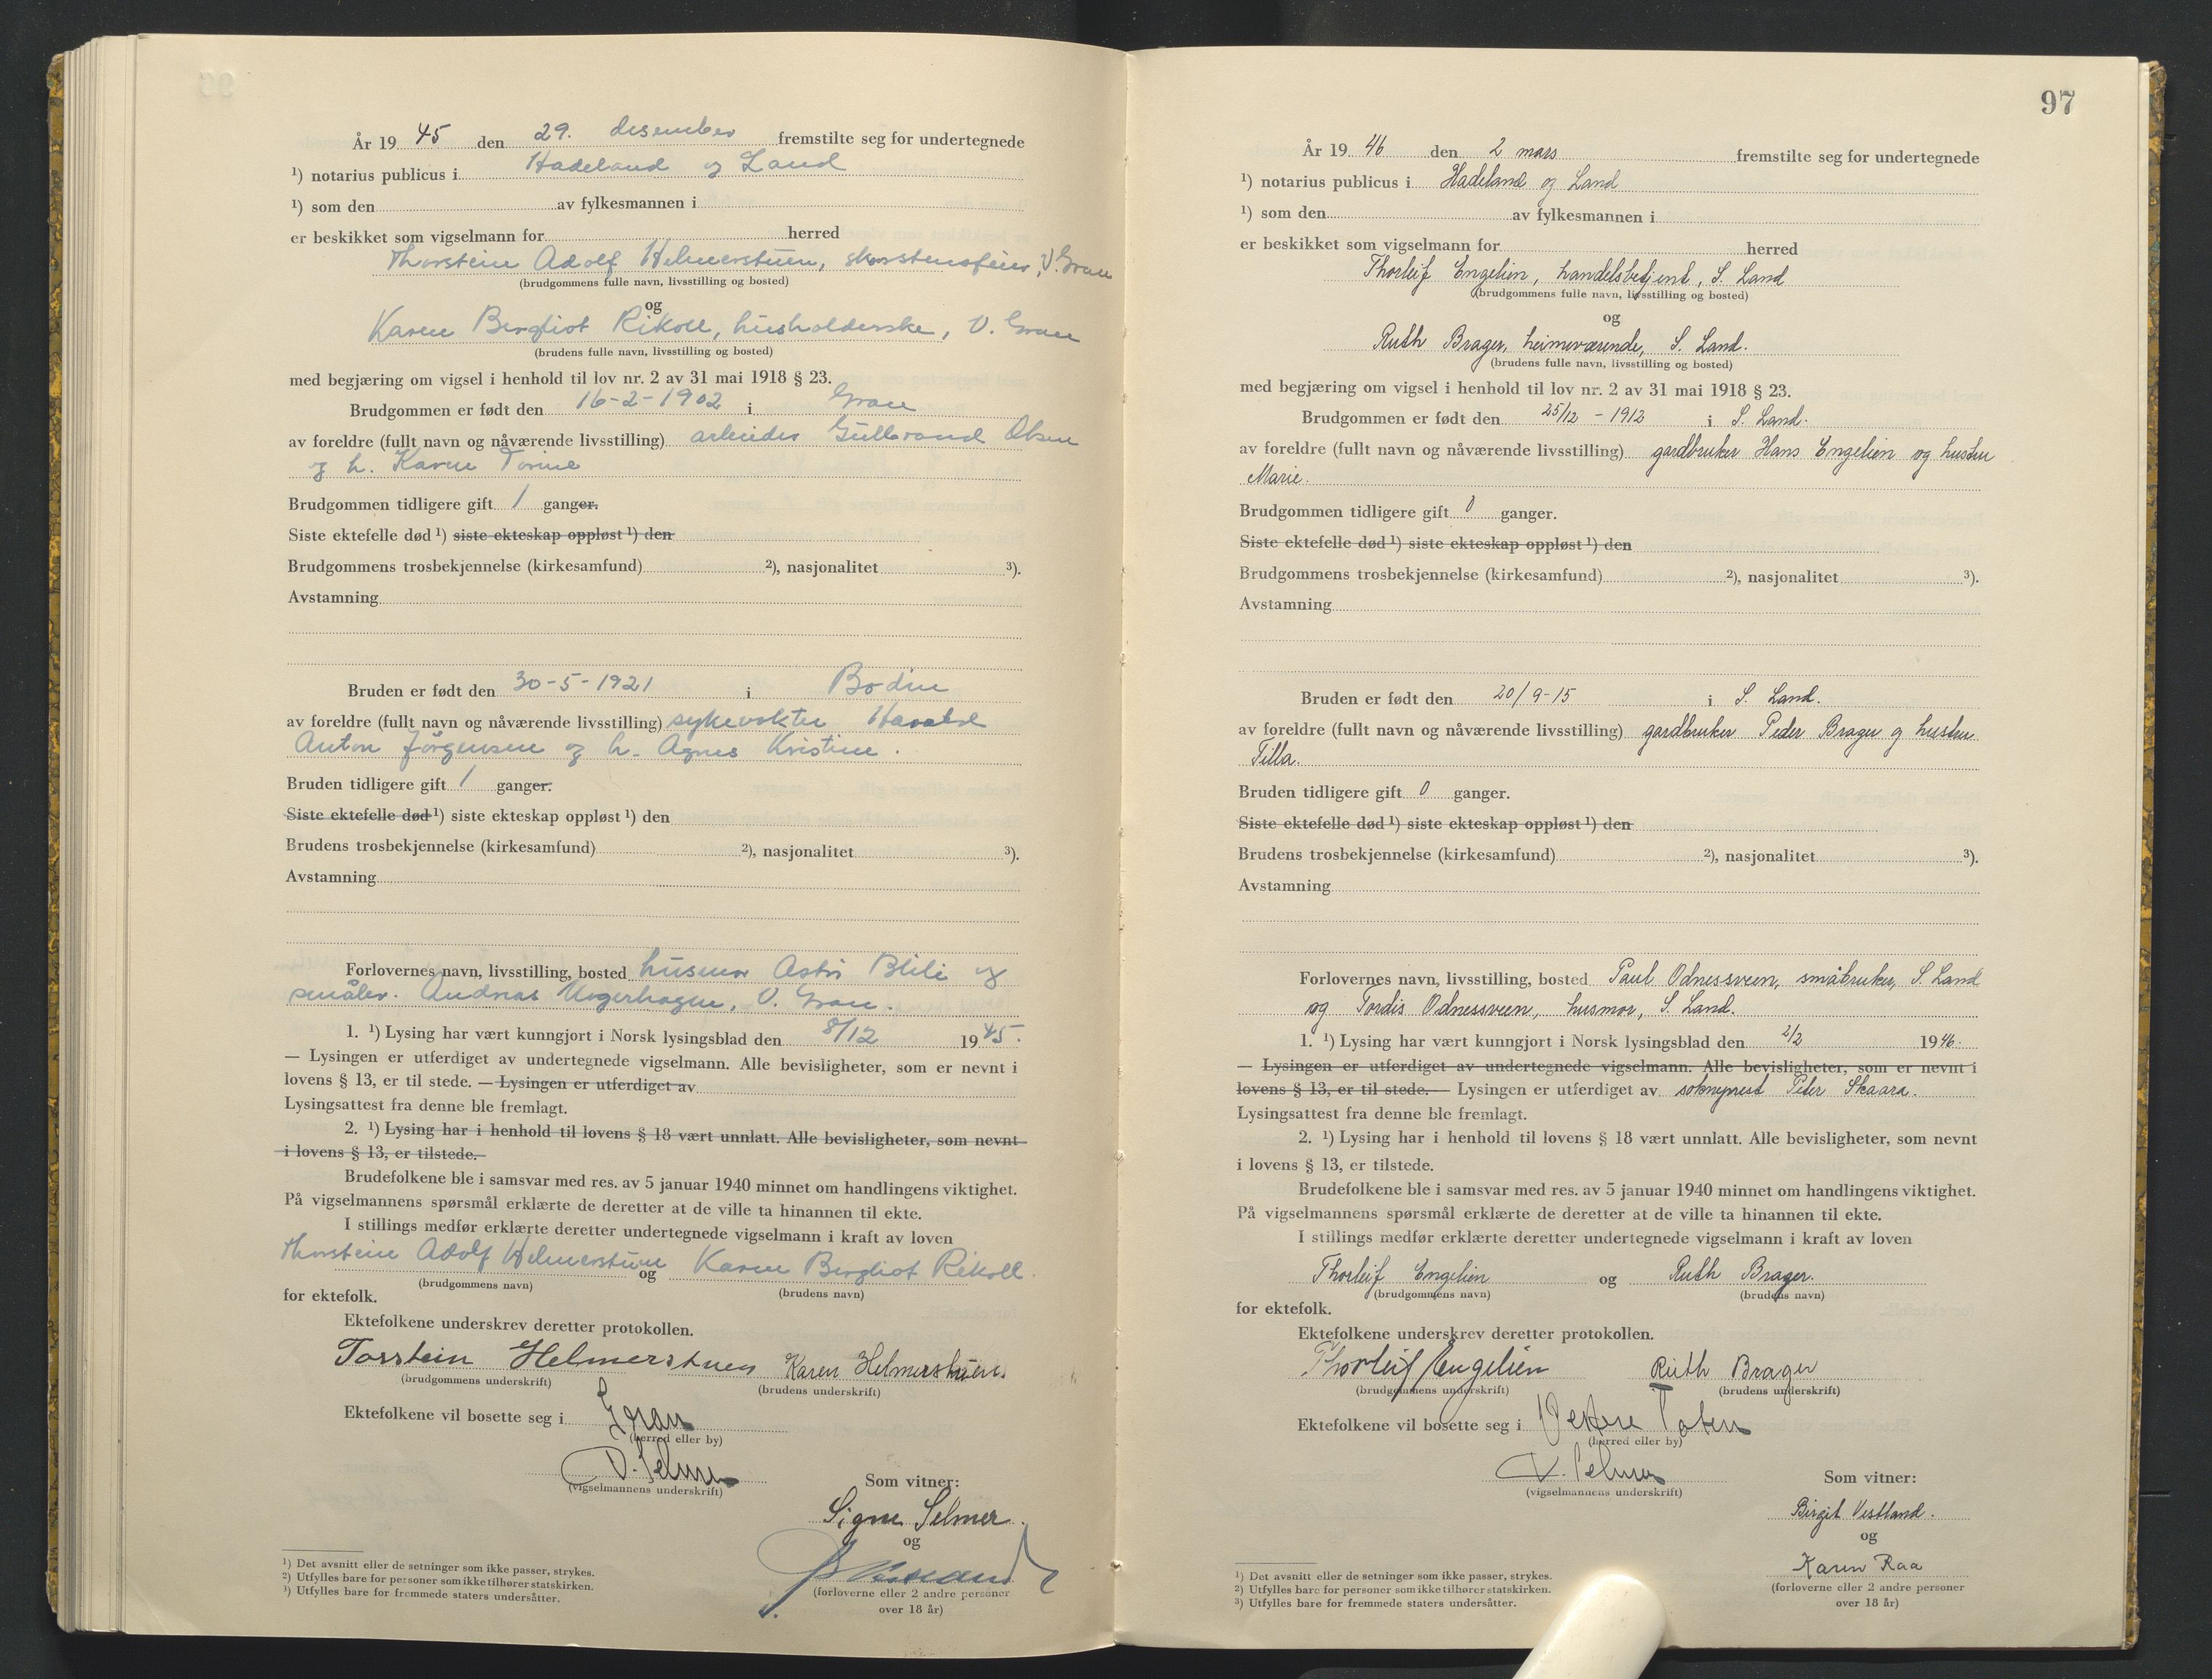 År 19 45 den 29. desember fremstilte seg for undertegnede
¹) notarius publicus i Hadeland og Land
¹) som den av fylkesmannen i
er beskikket som vigselmann for herred
Thorstein Adolf Helmerstuen, skorstensfeier, V. Gran
(brudgommens fulle navn, livsstilling og bosted)
og
Karen Bergliot Rikoll, husholderske, V. Gran
(brudens fulle navn, livsstilling og bosted)
med begjæring om vigsel i henhold til lov nr. 2 av 31 mai 1918 § 23.
Brudgommen er født den 16-2-1902 i Gran
av foreldre (fullt navn og nåværende livsstilling) arbeider Gulbrand Olsen
og h. Karen Torine
Brudgommen tidligere gift 1 ganger.
Siste ektefelle død ¹) siste ekteskap oppløst ¹) den
Brudgommens trosbekjennelse (kirkesamfund) ²), nasjonalitet ³).
Avstamning
Bruden er født den 30-5-1921 i Bodin
av foreldre (fullt navn og nåværende livsstilling) sykevokter Harald
Anton Jörgensen og h. Agnes Kristine.
Bruden tidligere gift 1 ganger.
Siste ektefelle død ¹) siste ekteskap oppløst ¹) den
Brudens trosbekjennelse (kirkesamfund) ²), nasjonalitet ³).
Avstamning
Forlovernes navn, livsstilling, bosted husmor Astri Blili og
Andreas V. Gran.
1. ¹) Lysing har vært kunngjort i Norsk lysingsblad den 8/12 19 45.
— Lysingen er utferdiget av undertegnede vigselmann. Alle bevisligheter, som er nevnt i
lovens § 13, er til stede. — Lysingen er utferdiget av
Lysingsattest fra denne ble fremlagt.
2. ¹) Lysing har i henhold til lovens § 18 vært unnlatt. Alle bevisligheter, som nevnt
i lovens § 13, er tilstede.
Brudefolkene ble i samsvar med res. av 5 januar 1940 minnet om handlingens viktighet.
På vigselmannens spørsmål erklærte de deretter at de ville ta hinannen til ekte.
I stillings medfør erklærte deretter undertegnede vigselmann i kraft av loven
Thorstein Adolf Helmerstuen og Karen Bergliot Rikoll.
(brudgommens navn) (brudens navn)
for ektefolk.
Ektefolkene underskrev deretter protokollen.
Torstein Helmerstuen Karen Helmerstuen.
(brudgommens underskrift) (brudens underskrift)
Ektefolkene vil bosette seg i Gran
(herred eller by)
V. Selmer
(vigselmannens underskrift)
Som vitner:
Signe Selmer.
og
(forloverne eller 2 andre personer
over 18 år)
¹) Det avsnitt eller de setninger som ikke passer, strykes.
²) Utfylles bare for personer som ikke tilhører statskirken.
³) Utfylles bare for fremmede staters undersåtter.
97
År 19 46 den 2 mars fremstilte seg for undertegnede
¹) notarius publicus i Hadeland og Land
¹) som den av fylkesmannen i
er beskikket som vigselmann for herred
Thorleif Engelien, handelsbetjent, S. Land
(brudgommens fulle navn, livsstilling og bosted)
og
Ruth Brager, heimeværende, S. Land.
(brudens fulle navn, livsstilling og bosted)
med begjæring om vigsel i henhold til lov nr. 2 av 31 mai 1918 § 23.
Brudgommen er født den 25/12 - 1912 i S. Land.
av foreldre (fullt navn og nåværende livsstilling) gardbruker Hans Engelien og hustru
Marie.
Brudgommen tidligere gift 0 ganger.
Siste ektefelle død ¹) siste ekteskap oppløst ¹) den
Brudgommens trosbekjennelse (kirkesamfund) ²), nasjonalitet ³).
Avstamning
Bruden er født den 20/9-15 i S. Land.
av foreldre (fullt navn og nåværende livsstilling) gardbruker Peder Brager og hustru
Tilla.
Bruden tidligere gift 0 ganger.
Siste ektefelle død ¹) siste ekteskap oppløst ¹) den
Brudens trosbekjennelse (kirkesamfund) ²), nasjonalitet ³).
Avstamning
Forlovernes navn, livsstilling, bosted Paul Odnessveen, småbruker, S. Land
og Tordis Odnessveen, husmor, S. Land.
1. ¹) Lysing har vært kunngjort i Norsk lysingsblad den 2/2 19 46.
— Lysingen er utferdiget av undertegnede vigselmann. Alle bevisligheter, som er nevnt i
lovens § 13, er til stede. — Lysingen er utferdiget av sokneprest Peter Skaara.
Lysingsattest fra denne ble fremlagt.
2. ¹) Lysing har i henhold til lovens § 18 vært unnlatt. Alle bevisligheter, som nevnt
i lovens § 13, er tilstede.
Brudefolkene ble i samsvar med res. av 5 januar 1940 minnet om handlingens viktighet.
På vigselmannens spørsmål erklærte de deretter at de ville ta hinannen til ekte.
I stillings medfør erklærte deretter undertegnede vigselmann i kraft av loven
Thorleif Engelien og Ruth Brager.
(brudgommens navn) (brudens navn)
for ektefolk.
Ektefolkene underskrev deretter protokollen.
Thorleif Engelien Ruth Brager
(brudgommens underskrift) (brudens underskrift)
Ektefolkene vil bosette seg i Vestre Toten
(herred eller by)
V. Selmer
(vigselmannens underskrift)
Som vitner:
Birgit Vestland.
og
Karen Raa
(forloverne eller 2 andre personer
over 18 år)
¹) Det avsnitt eller de setninger som ikke passer, strykes.
²) Utfylles bare for personer som ikke tilhører statskirken.
³) Utfylles bare for fremmede staters undersåtter.